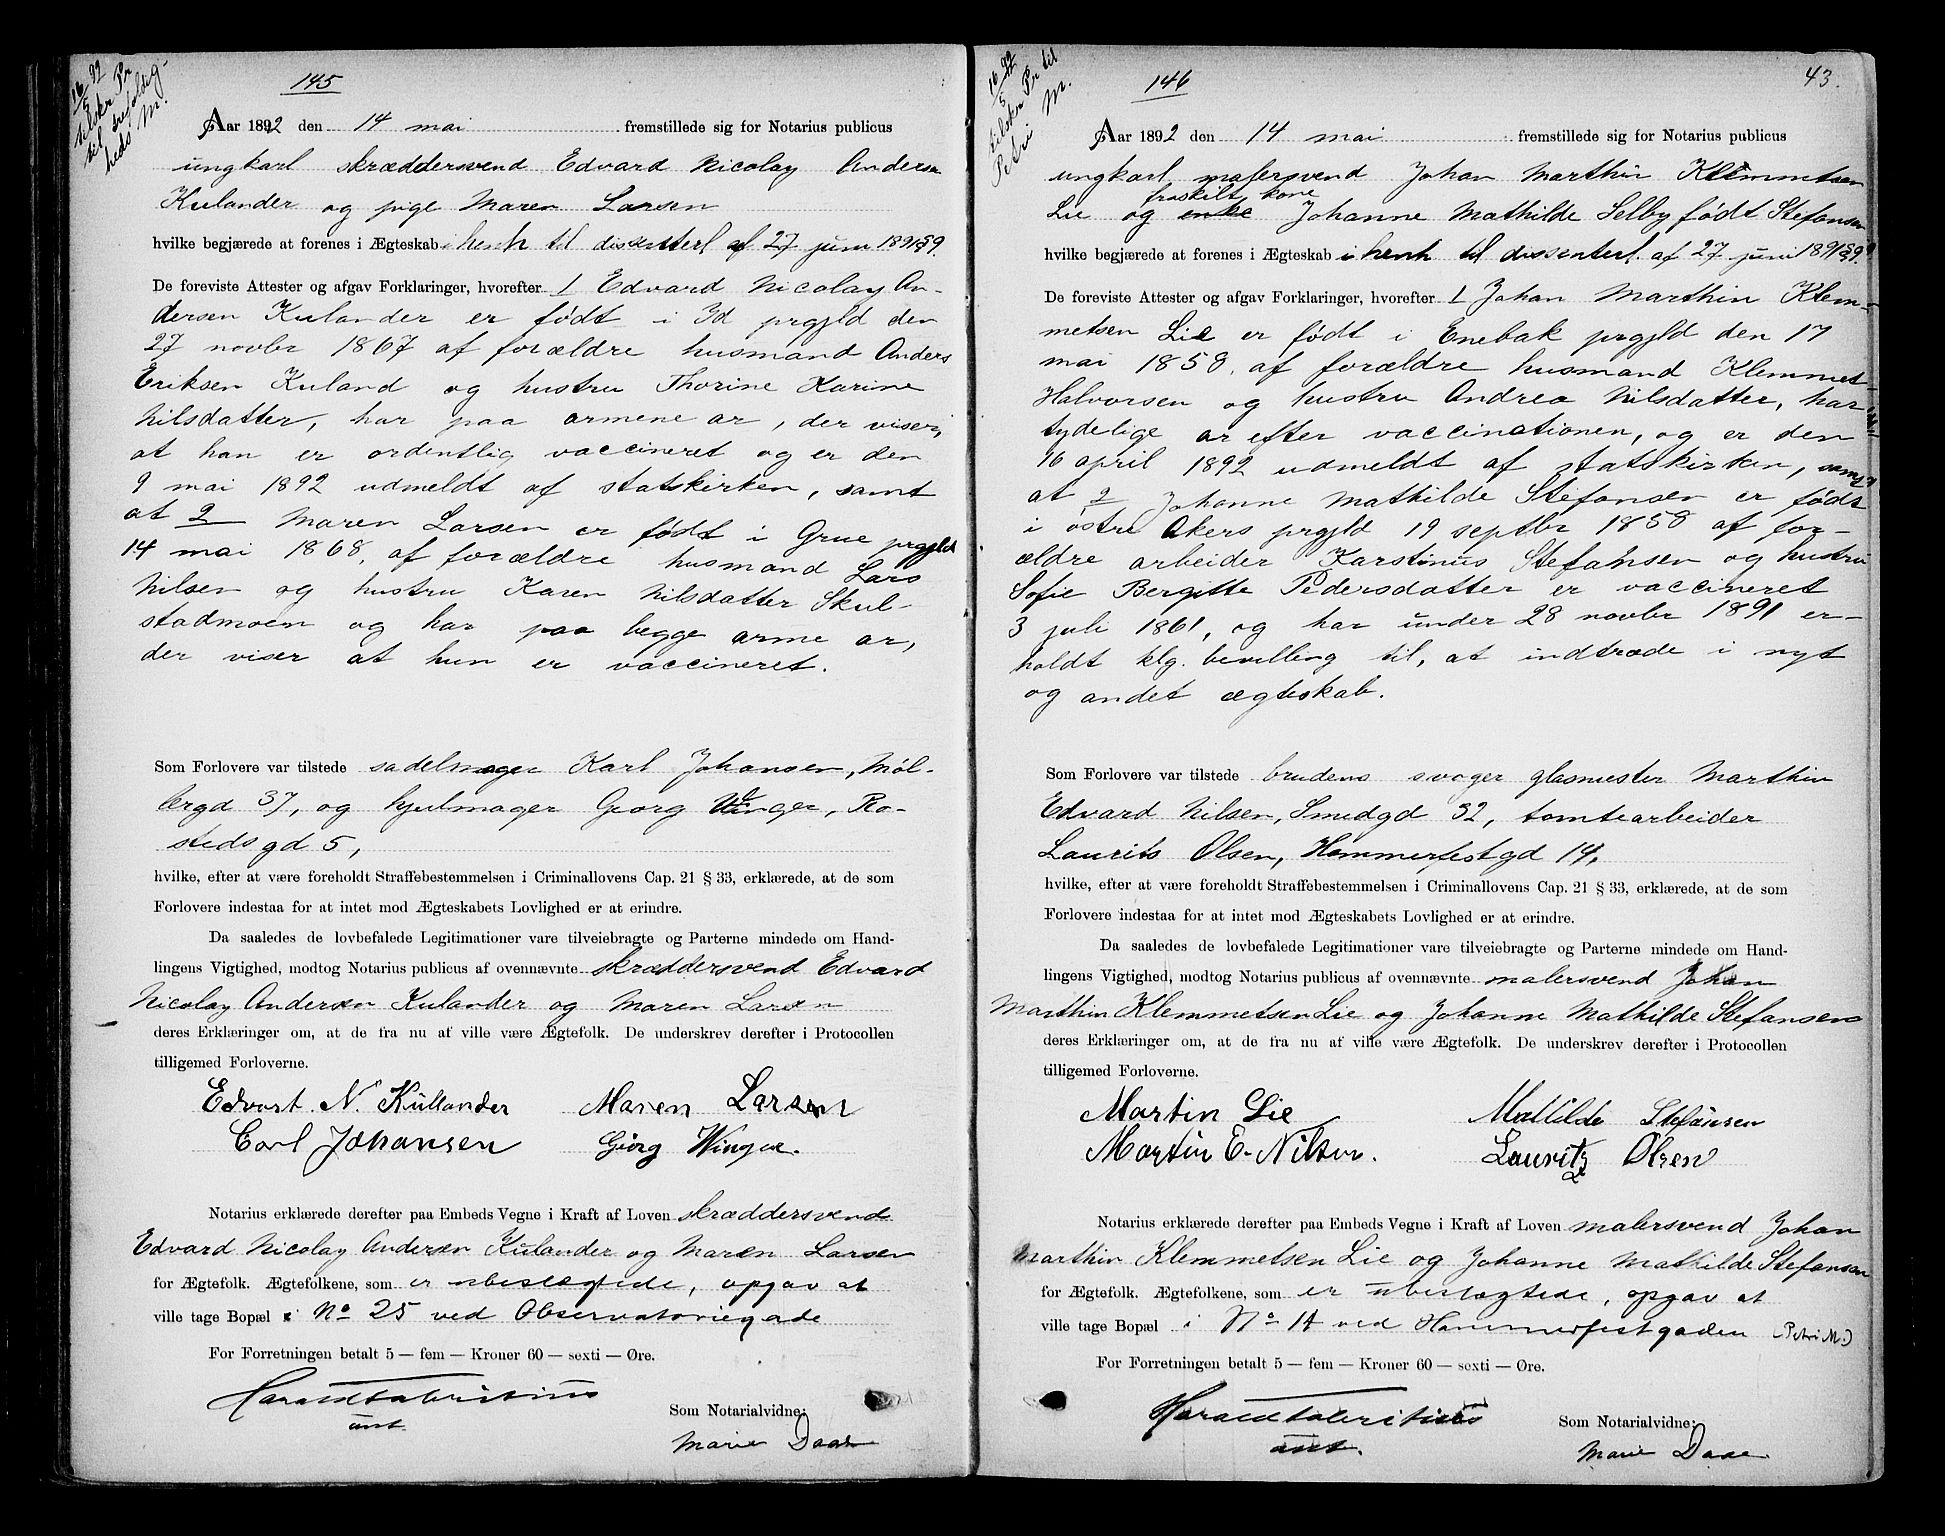 16/5 92
tilskr Pr
til trefoldig-
heds M.
145
Aar 1892 den 14 mai fremstillede sig for Notarius publicus
ungkarl skræddersvend Edvard Nicolay Andersen
Kulander og pige Maren Larsen
hvilke begjærede at forenes i Ægteskab i henh til dissenterl af 27 juni 1891 § 9.
De foreviste Attester og afgav Forklaringer, hvorefter 1 Edvard Nicolay An-
dersen Kulander er født i Id prgjld den
27 novbr 1867 af forældre husmand Anders
Eriksen Kuland og hustru Thorine Karine
Nilsdatter, har paa armene ar, der viser,
at han er ordentlig vaccineret og er den
9 mai 1892 udmeldt af statskirken, samt
at 2 Maren Larsen er født i Grue prgjld
14 mai 1868, af forældre husmand Lars
Nilsen og hustru Karen Nilsdatter Skul-
stadmoen og har paa begge arme ar,
der viser at hun er vaccineret.
Som Forlovere var tilstede sadelmager Karl Johansen, Møl-
lergd 37, og hjulmager Georg Winger, Ro-
stedsgd 5,
hvilke, efter at være foreholdt Straffebestemmelsen i Criminallovens Cap. 21 § 33, erklærede, at de som
Forlovere indestaa for at intet mod Ægteskabets Lovlighed er at erindre.
Da saaledes de lovbefalede Legitimationer vare tilveiebragte og Parterne mindede om Hand-
lingens Vigtighed, modtog Notarius publicus af ovennævnte skræddersvend Edvard
Nicolay Andersen Kulander og Maren Larsen
deres Erklæringer om, at de fra nu af ville være Ægtefolk. De underskrev derefter i Protocollen
tilligemed Forloverne.
Edvart N. Kullander Maren Larsen
Carl Johansen Georg Winger.
Notarius erklærede derefter paa Embeds Vegne i Kraft af Loven skræddersvend
Edvard Nicolay Andersen Kulander og Maren Larsen
for Ægtefolk. Ægtefolkene, som er ubeslægtede, opgav at
ville tage Bopæl i No 25 ved Observatoriegade
For Forretningen betalt 5 — fem — Kroner 60 — sexti — Øre.
Som Notarialvidne:
Marie Daae
16/5 92
tilskr Pr til
Petri M.
146
43.
Aar 1892 den 14 mai fremstillede sig for Notarius publicus
ungkarl malersvend Johan Marthin Klemmetsen
fraskilt kone
Lie og enke Johanne Mathilde Selby født Stefansen
hvilke begjærede at forenes i Ægteskab i henh til dissenterl. af 27 juni 1891 § 9.
De foreviste Attester og afgav Forklaringer, hvorefter 1 Johan Marthin Klem-
metsen Lie er født i Enebak prgjld den 17
mai 1858, af forældre husmand Klemmet
Halvorsen og hustru Andrea Nilsdatter, har
tydelige ar efter vaccinationen, og er den
16 april 1892 udmeldt af statskirken, samt
at 2 Johanne Mathilde Stefansen er født
i østre Akers prgjld 19 septbr 1858 af for-
ældre arbeider Karstinus Stefansen og hustru
Sofie Bergitte Pedersdatter er vaccineret
3 juli 1861, og har under 28 novbr 1891 er-
holdt klg. bevilling til, at indtræde i nyt
og andet ægteskab.
Som Forlovere var tilstede brudens svoger glasmester Marthin
Edvard Nilsen, Smedgd 32, tomtearbeider
Laurits Olsen, Hammerfestgd 14,
hvilke, efter at være foreholdt Straffebestemmelsen i Criminallovens Cap. 21 § 33, erklærede, at de som
Forlovere indestaa for at intet mod Ægteskabets Lovlighed er at erindre.
Da saaledes de lovbefalede Legitimationer vare tilveiebragte og Parterne mindede om Hand-
lingens Vigtighed, modtog Notarius publicus af ovennævnte malersvend Johan
Marthin Klemmetsen Lie og Johanne Mathilde Stefansen
deres Erklæringer om, at de fra nu af ville være Ægtefolk. De underskrev derefter i Protocollen
tilligemed Forloverne.
Martin Lie Mathilde Stefansen
Martin E. Nilsen. Lauritz Olsen
Notarius erklærede derefter paa Embeds Vegne i Kraft af Loven malersvend Johan
Marthin Klemmetsen Lie og Johanne Mathilde Stefansen
for Ægtefolk. Ægtefolkene, som er ubeslægtede, opgav at
ville tage Bopæl i No 14 ved Hammerfestgaden (Petri M.)
For Forretningen betalt 5 — fem — Kroner 60 — sexti — Øre.
Som Notarialvidne:
Marie Daae